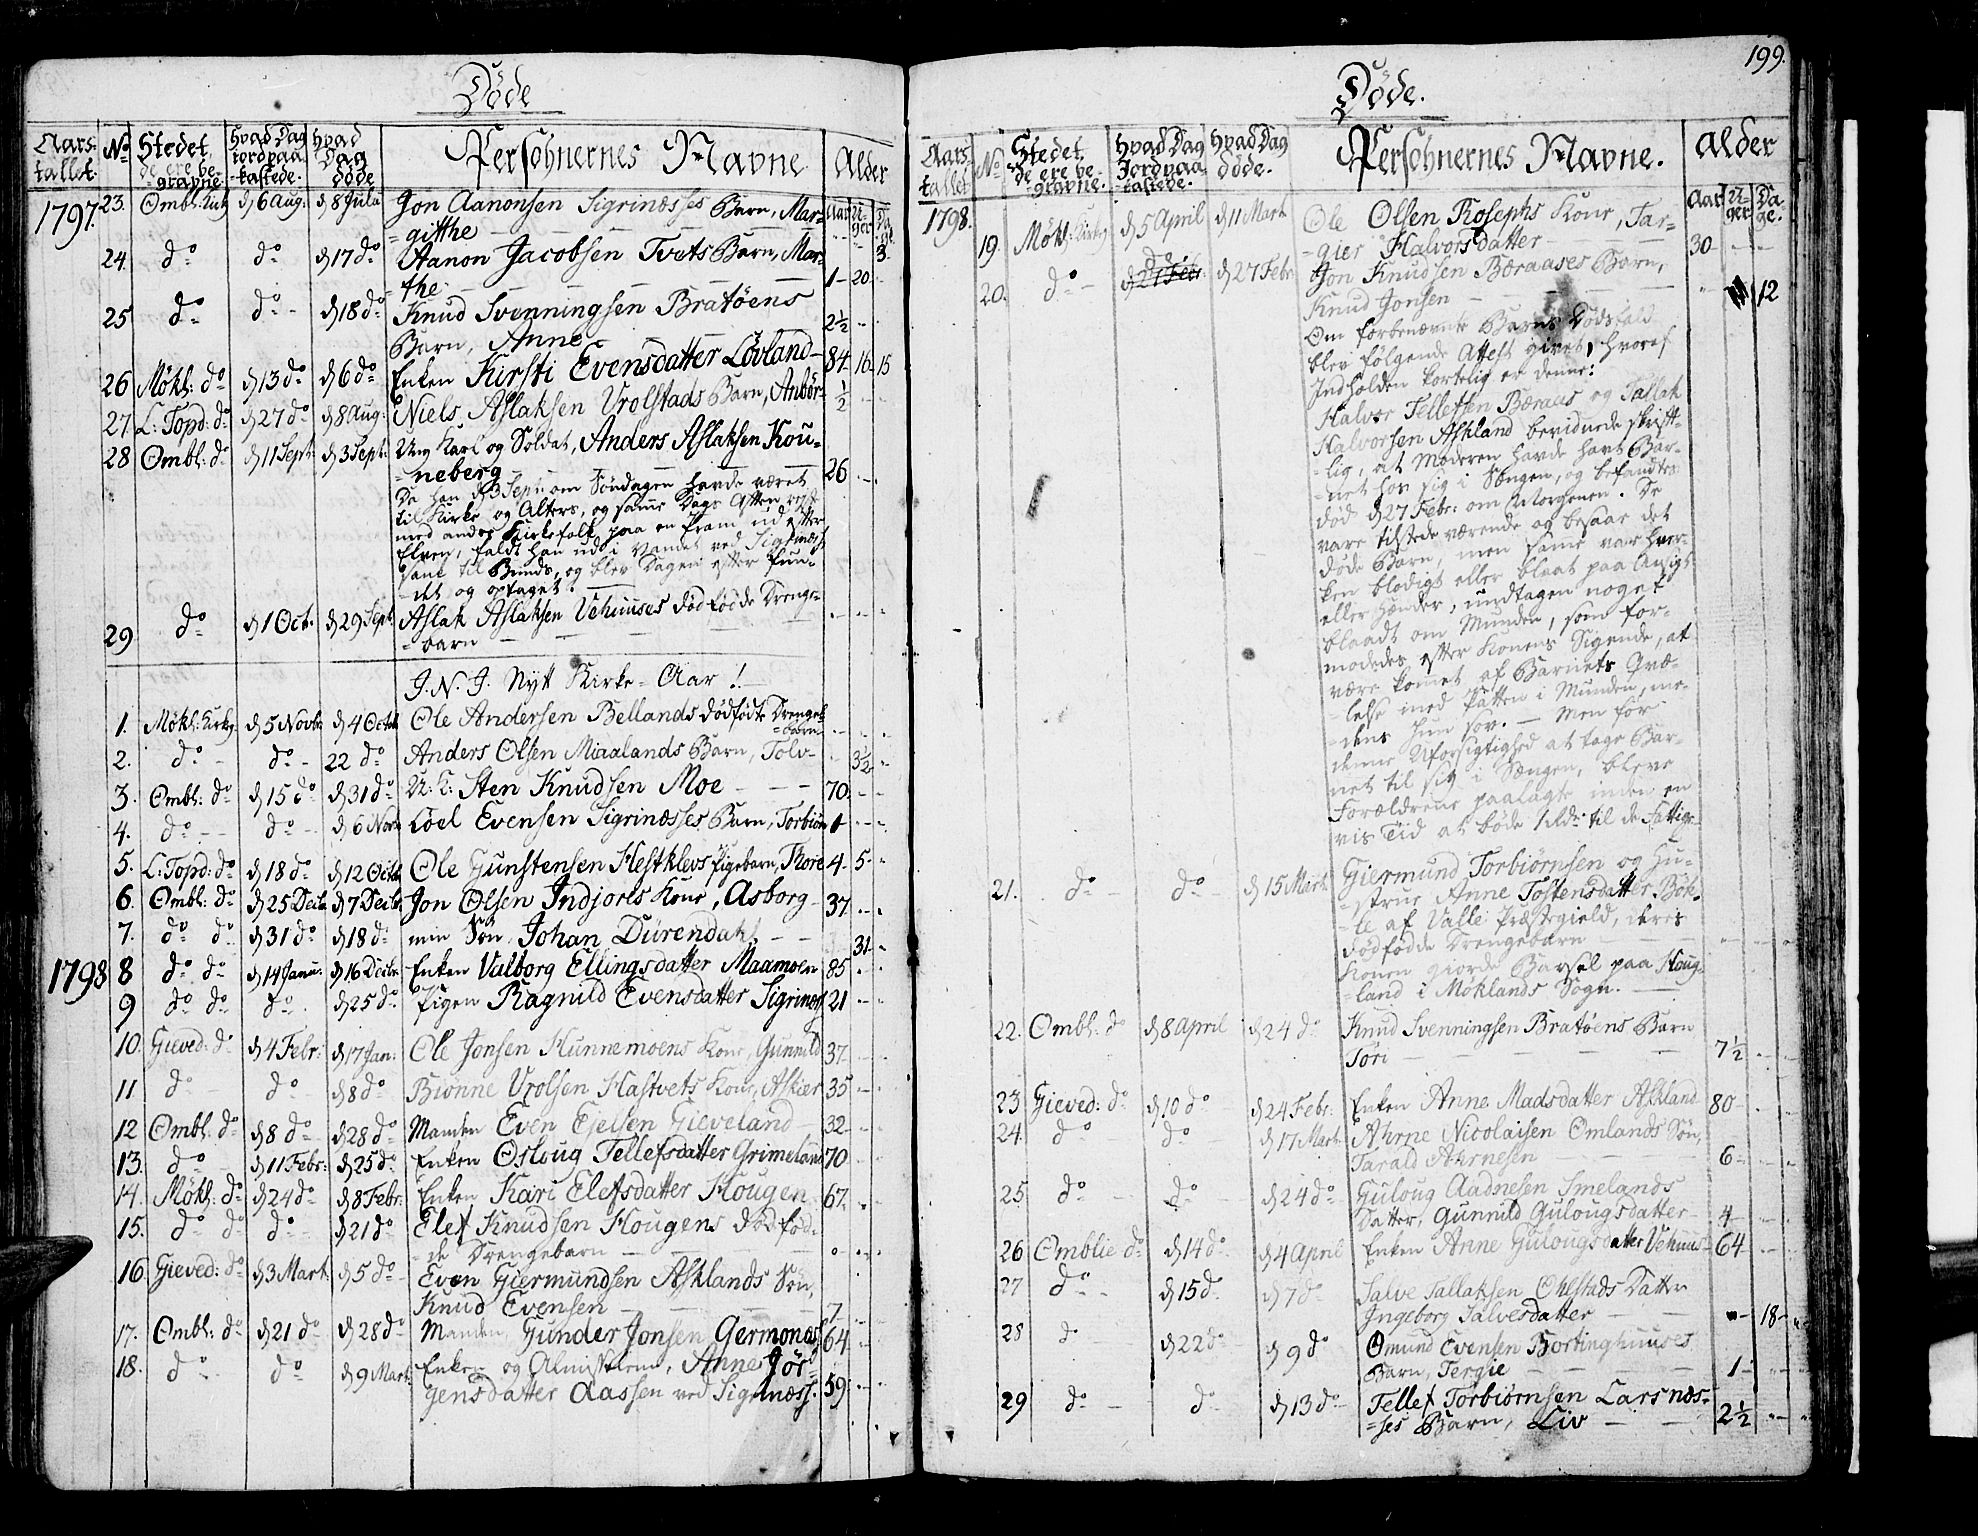 Døde
Aars-tallet. No Stedet de ere be-gravne. Hvad Dag Jord paa-kastede. Hvad Dag døde Persohnernes Navne Alder
Aar Uger Dage
1797. 23. Ombl: Kirke d 6 Aug: d 8 Julii Jon Aanonsen Sigrinæsses Barn, Mar-
=githe 3
24. do do d 17 do Aanon Jacobsen Tvets Barn, Mar-
=the 1 - 20
25 do do d 18 do Knud Svenningsen Bratøens
Barn, Anne 2½
26 Møkl: do d 13 do d 6 do Enken Kirsti Evensdatter Løvland 84. 16. 15
27. L: Topd: do d 27 do d 8 Aug: Niels Aslaksen Vrolstads Barn, Anbør- ½
28 Ombl: do d 11 Sept: d 3 Sept: Ung Karl og Soldat, Anders Aslaksen Kou-
=neberg 26
Da han d 3 Sept: om Søndagen havde været
til Kirke og Alters, og samme Dags Aften rejste
med andre Kirkefolk paa en Pram ud efter
Elven, faldt han ud i Vandet ved Sigrinæss
sank til Bunds, og blev Dagen efter fun-
=det og optaget.
29 do d 1 Oct. d 29 Sept: Aslak Aslaksen Vehuuses dødfødde Drenge-
=barn
J. N. J. Nytt Kirke-Aar!
1. Møkl: Kirke d 5 Novbr d 4 Octob Ole Andersen Bellands dødfødte Drenge-
=barn
2. do do 22 do Anders Olsen Miaalands Barn, Tolv 3½
3. Ombl: do d 15 do d 31 do U: K: Sten Knudsen Moe 70.
4. do do d 6 Nov Loel Evensen Sigrinæsses Barn, Torbiør 1
5. L: Topd: do d 18 do d 12 Octob Ole Gunstensen Hestklevs Pigebarn, Thore 4 - 5
6. Ombl: do d 25 Decb d 7 Decbr Jon Olsen Indjords Kone, Asborg 37.
7. do do d 31 do d 18 do min Søn Johan Dürendahl 31
1798 8 do do d 14 Janu: d 16 Decbr Enken Valborg Ellingsdatter Maamoen 85
9 do do do d 25 do Pigen Ragnild Evensdatter Sigrinæss 21
10. Gieved: do d 4 Febr: d 17 Jan: Ole Jonsen Hunnemoens Kone, Gunnild 37
11 do do d 8 do Biønne Vrolsen Hastvets Kone, Askier 35
12 Ombl: do d 8 do d 28 do Manden Even Ejelsen Gieveland 32
13. do d 11 Febr: d 25 do Enken Osloug Tellefsdatter Grimeland 70
14. Møkl: do d 24 do d 8 Febr: Enken Kari Elefsdatter Hougen 67
15. do do do d 21 do Elef Knudsen Hougens dødfød-
=de Drengebarn
16 Gieved: do d 3 Mart. d 5 do Even Giermundsen Asklands Søn,
Knud Evensen 7
17. Ombl: do d 21 do d 28 do Manden, Gunder Jonsen Germonæs 64
18. do do d 9 Mart. Enken og Almisselem, Anne Jør-
gensdatter Aassen ved Sigrinæss. 59
199.
Døde.
Aars-tallet No Stedet de ere be-gravne. Hvad Dag Jord paa-kastede. Hvad Dag døde. Persohnernes Navne. Alder
Aar Uger Dage.
1798. 19. Møkl: Kirke d 5 April d 11 Mart. Ole Olsen Rosephs Kone, Tar-
=gier Halvorsdatter 30
20. do do d 27 Febr: Jon Knudsen Bæraases Barn,
Knud Jonsen 12
Om forbenævnte Barns Dødsfald
blev følgende Attest givet, hvoraf
Indholden kortelig er denne:
Halvor Tellefsen Bæraas og Tallak
Halvorsen Askland bevidnede skrift-
=lig, at Moderen havde havt Bar-
=net hos sig i Sengen, og befandtes
død d 27 Febr: om Morgenen. De
vare tilstede værende og besaae det
døde Barn, men samme var hver-
ken blodigt eller blaat paa Ansigt
eller Hænder, undtagen noget
blaadt om Munden, som for-
modedes efter Konens Sigende, at
være komet af Barnets Qvæ-
=lelse med Patten i Munden, me-
=dens hun sov. - Men for
denne Uforsigtighed at tage Bar-
net til sig i Sengen, bleve
Forældrene paalagte inden en
vis Tid at bøde 1 rdr til de Fattige
21. do do d 15 Mart. Giermund Torbiørnsen og Hu-
=strue Anne Tostensdatter Bøk-
=le af Valle Præstegield, deres
dødfødde Drengebarn
Konen giorde Barsel paa Houg-
=land i Møklands Sogn.
22. Ombl: do d 8 April d 24 do Knud Svenningsen Bratøens Barn
Tori 7½
23 Gieved: do d 10 do d 24 Febr: Enken Anne Madsdatter Askland 80
24. do do d 17 Mart. Ahrne Nicolaisen Omlands Søn,
Tarald Ahrnesen 6
25 do do d 24 do Guloug Aadnesen Smelands
Datter, Gunnild Gulougsdatter 4
26 Omblie do d 14 do d 4 April Enken Anne Gulougsdatter Vehuus 64
27 do d 15 do d 7 do Salve Tallaksen Ohlstads Datter
Ingeborg Salvesdatter 18
28 do d 22 do d 9 do Omund Evensen Bortinghuuses
Barn, Tergie 1
29 do do d 13 do Tellef Torbiørnsen Larsnæs-
=ses Barn, Liv 2½